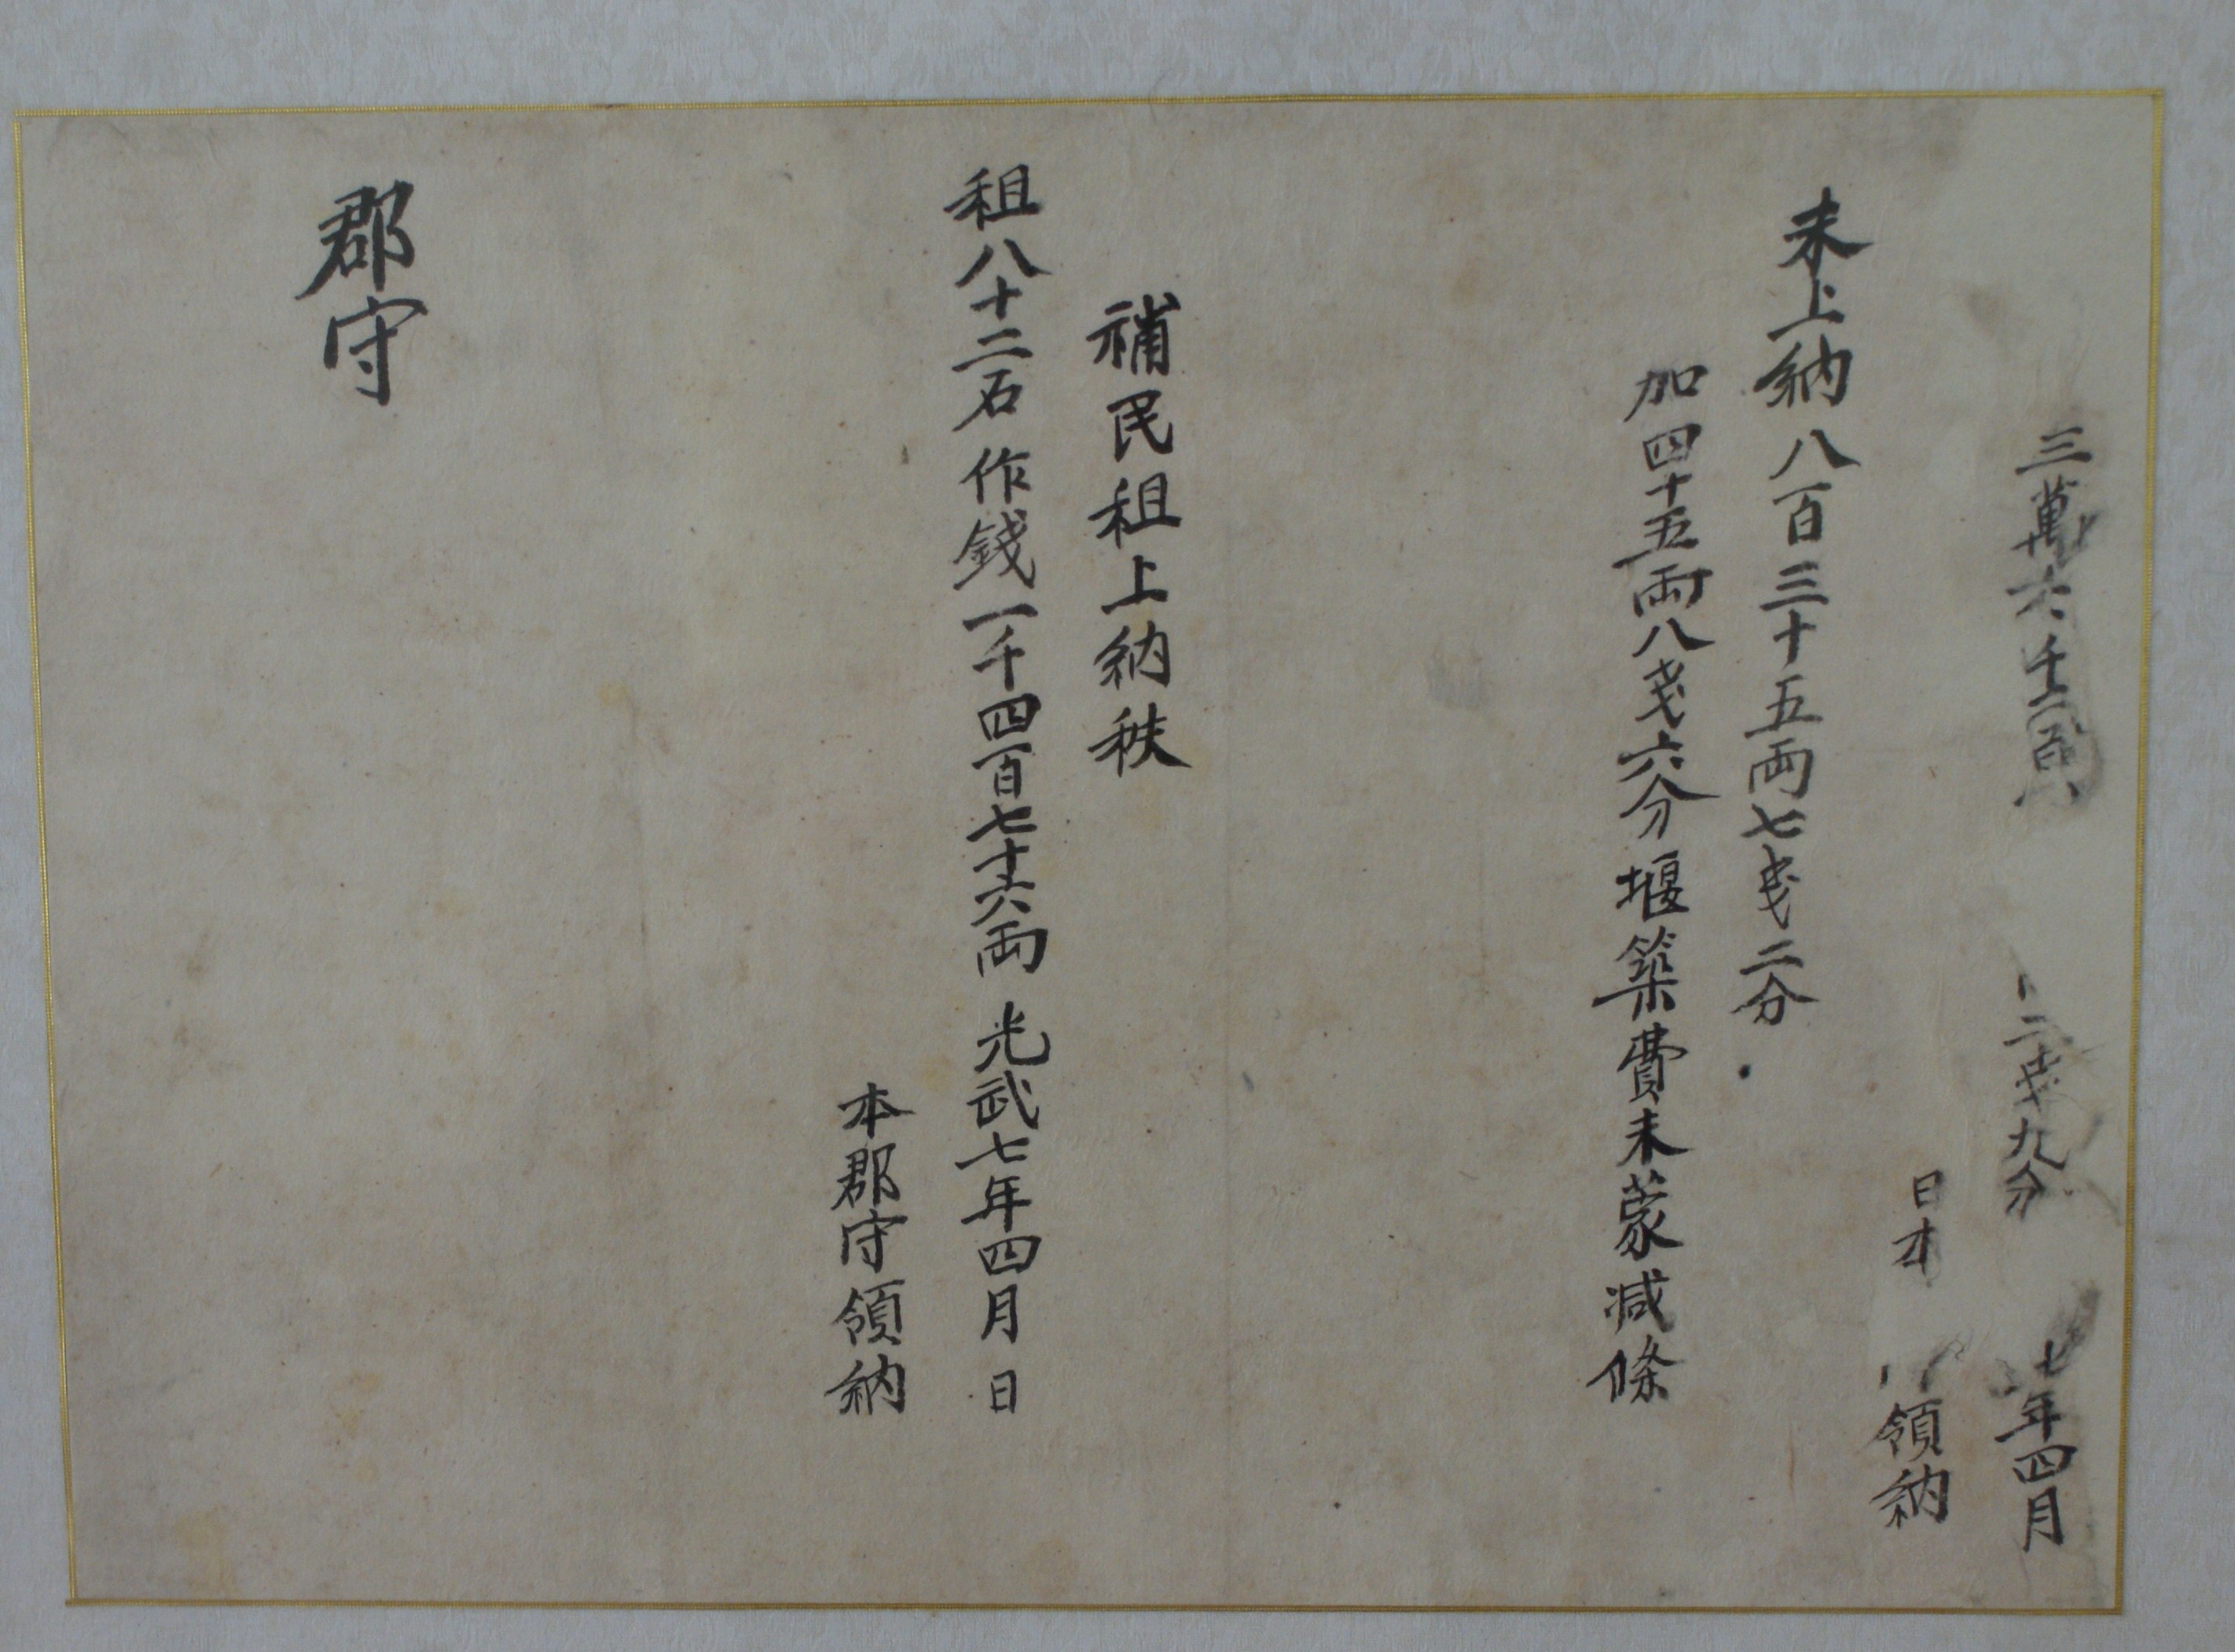 三萬六千百八 二戔九分 七年四月
日本 領納
未上納八百三十五両七戔二分
加四十五両八戔六分堰築費未蒙減條
補民租上納秩
租八十二石作錢一千四百七十六両 光武七年四月 日
本郡守領納
郡守